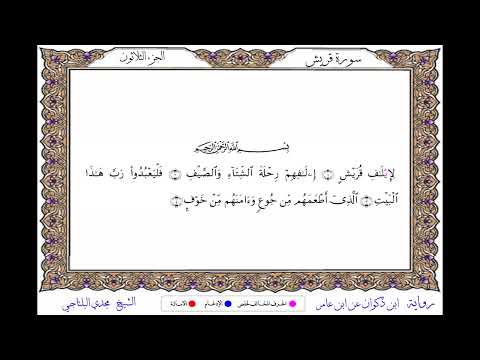 سورة قريش
الجزء الثلاثون
بِسْمِ ٱللَّهِ ٱلرَّحْمَٰنِ ٱلرَّحِيمِ
لِإِلَٰفِ قُرَيْشٍ ۝ إِۦلَٰفِهِمْ رِحْلَةَ ٱلشِّتَآءِ وَٱلصَّيْفِ ۝ فَلْيَعْبُدُوا۟ رَبَّ هَٰذَا
ٱلْبَيْتِ ۝ ٱلَّذِىٓ أَطْعَمَهُم مِّن جُوعٍ وَءَامَنَهُم مِّنْ خَوْفٍۭ ۝
رواية ابن ذكوان عن ابن عامر
الحرف المخالف لحفص الإدغام الإمالة
الشيخ مجدي البلتاجي